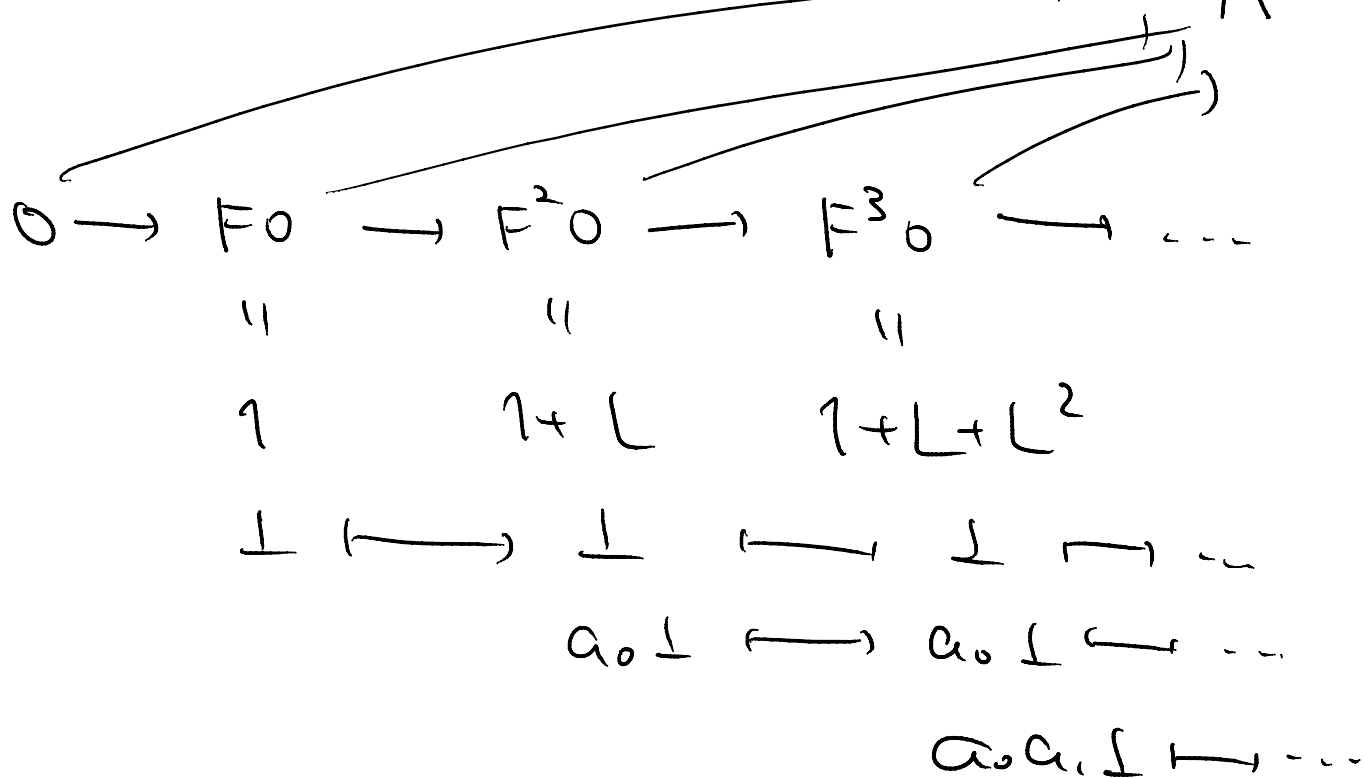 0 → F0 → F²0 → F³0 → ...
= = =
1 1 + L 1 + L + L²
⊥ ↦ ⊥ ↦ ⊥ ↦ ...
a₀⊥ ↦ a₀⊥ ↦ ...
a₀a₁⊥ ↦ ...